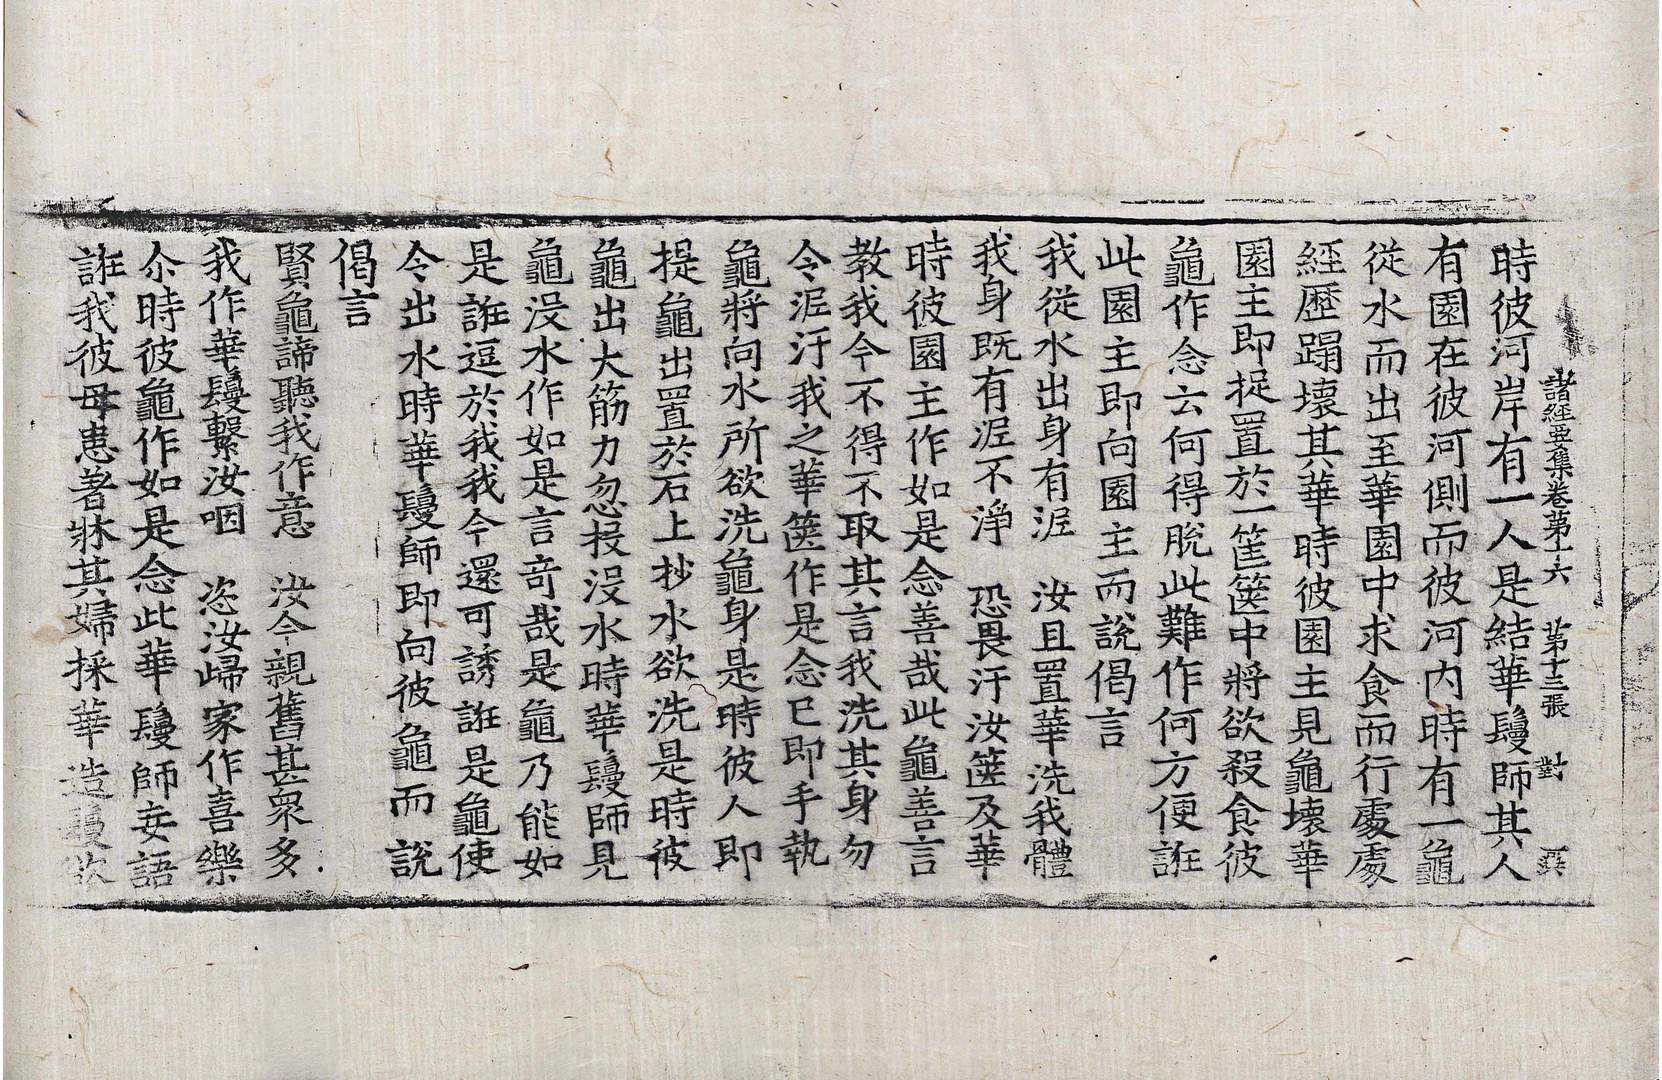 諸經要集卷第十六 第十三張 對
時彼河岸有一人是結華鬘師其人
有園在彼河側而彼河內時有一龜
從水而出至華園中求食而行處處
經歷蹋壞其華時彼園主見龜壞華
園主即捉置於一筐篋中將欲殺食彼
龜作念云何得脫此難作何方便誑
此園主即向園主而說偈言
我從水出身有泥 汝且置華洗我體
我身既有泥不淨 恐畏汙汝篋及華
時彼園主作如是念善哉此龜善言
教我今不得不取其言我洗其身勿
令泥汙我之華篋作是念已即手執
龜將向水所欲洗龜身是時彼人即
提龜出置於石上抄水欲洗是時彼
龜出大筋力忽投沒水時華鬘師見
龜沒水作如是言奇哉是龜乃能如
是誑逗於我我今還可誘誑是龜使
令出水時華鬘師即向彼龜而說
偈言
賢龜諦聽我作意 汝今親舊甚衆多
我作華鬘繫汝咽 恣汝歸家作喜樂
尒時彼龜作如是念此華鬘師妄語
誑我彼母患著牀其婦採華造鬘欲